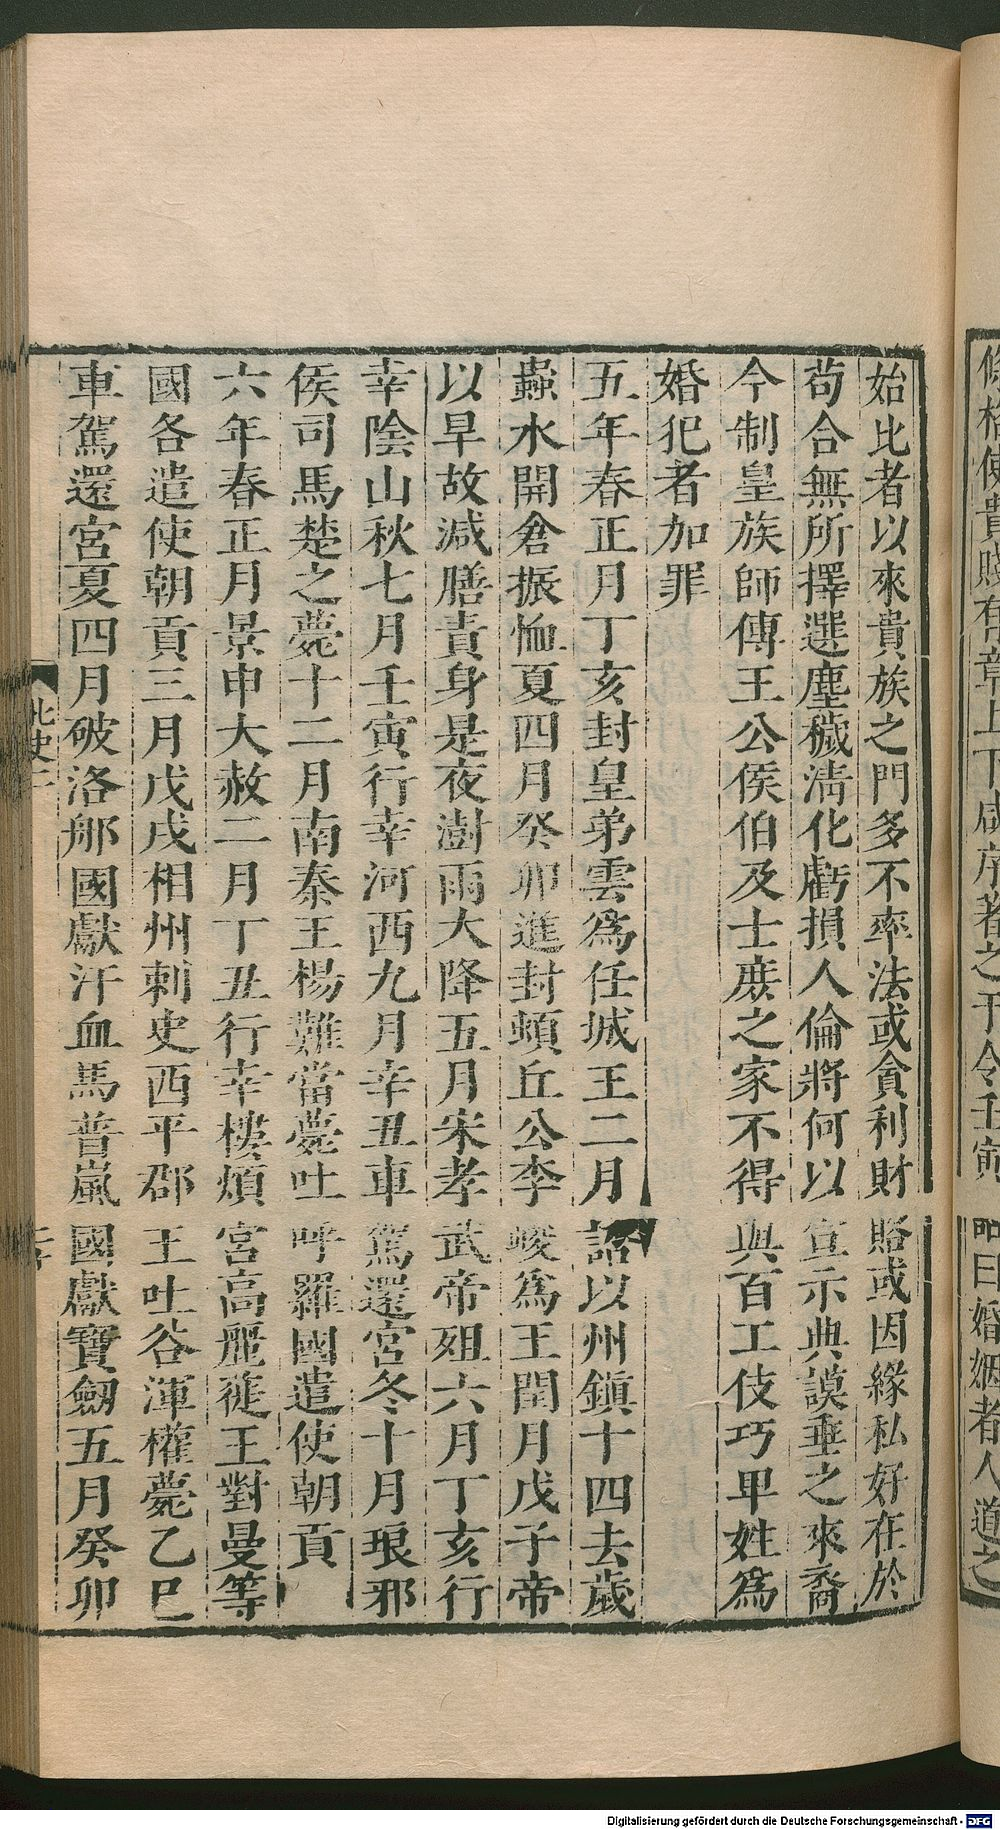 條格使貴賤有章上下咸序著之于令壬寅詔曰婚姻者人道之
始比者以來貴族之門多不率法或貪利財賂或因緣私好在於
苟合無所擇選塵穢淸化虧損人倫將何以宣示典謨垂之來裔
今制皇族師傅王公侯伯及士庶之家不得與百工伎巧卑姓爲
婚犯者加罪
五年春正月丁亥封皇弟雲爲任城王二月詔以州鎭十四去歲
蟲水開倉振恤夏四月癸卯進封頓丘公李峻爲王閏月戊子帝
以旱故減膳責身是夜澍雨大降五月宋孝武帝殂六月丁亥行
幸陰山秋七月壬寅行幸河西九月辛丑車駕還宮冬十月琅邪
侯司馬楚之薨十二月南秦王楊難當薨吐呼羅國遣使朝貢
六年春正月景申大赦二月丁丑行幸樓煩宮高麗蓰王對曼等
國各遣使朝貢三月戊戌相州刺史西平郡王吐谷渾權薨乙巳
車駕還宮夏四月破洛那國獻汗血馬普嵐國獻寶劔五月癸卯
北史二
Digitalisierung gefördert durch die Deutsche Forschungsgemeinschaft - DFG